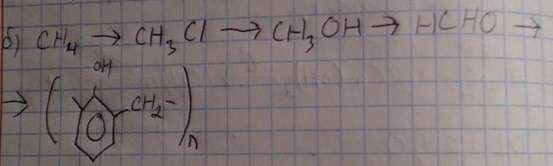 б) CH₄ → CH₃Cl → CH₃OH → HCHO →
OH
→ ( CH₂– )n